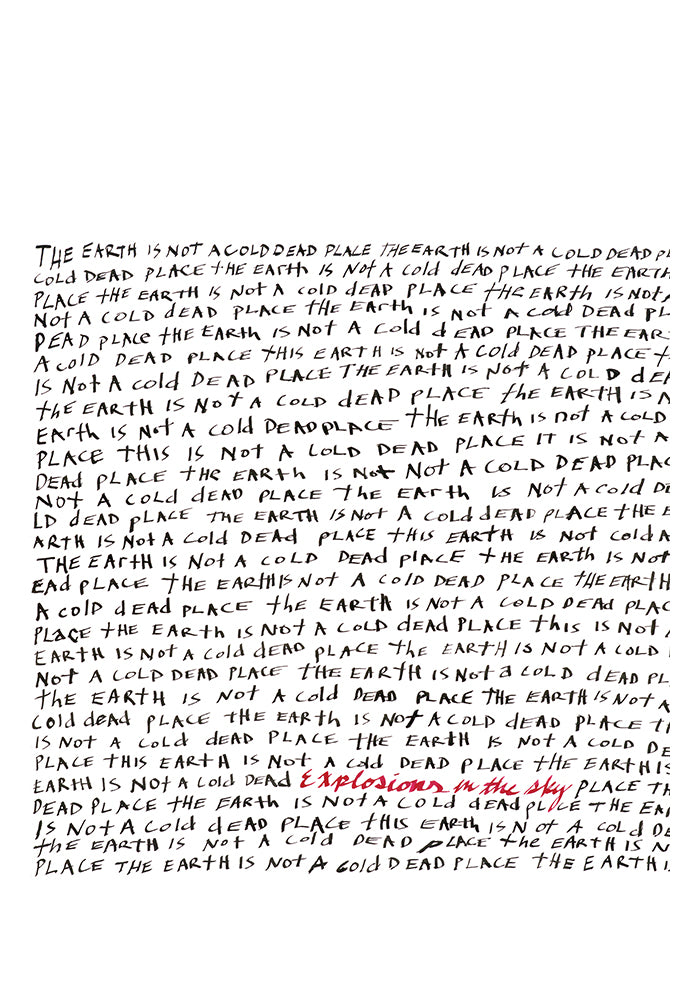 THE EARTH IS NOT A COLD DEAD PLALE THE EARTH IS NOT A COLD DEAD PL
Cold DEAD PLACE tHE EARth IS Not A Cold dEAD PLACE tHE EARTH
PLACE tHE EARTH IS Not A Cold dEAD PLACE tHE EARth IS Not A
Not A Cold dEAD PLACE tHE EARth IS Not A Cold DEAd PL
DEAD PLACE tHE EARth IS Not A Cold dEAD PLACE THE EAR
A Cold DEAD PLACE tHIS EARTH IS Not A Cold DEAD PLACE t
IS Not A Cold DEAD PLACE THE EARTH IS Not A COLD dEA
tHE EARTH IS Not A COLD dEAD PLACE thE EARTH IS N
EARth IS Not A Cold DEAD PLACE tHE EARth IS not A COLD
PLACE THIS IS NOT A LOLD DEAD PLACE IT IS NOT A
DEAD PLACE tHE EARth IS Not NOT A COLD DEAD PLAC
NOT A COLD dEAD PLACE thE EARth IS Not A Cold DE
LD dEAD pLACE THE EARTH IS Not A Cold dEAD PLACE tHE E
ARTH IS Not A Cold DEAD PLACE tHIS EARTH IS Not Cold A
THE EARtH IS Not A Cold DEAD PlACE tHE EARth IS Not
EAD PLACE tHE EARTH IS Not A Cold DEAD PLACE tHE EARTH
A Cold dEAD PLACE thE EARTH IS Not A COLD DEAD PLAC
PLACE tHE EARth IS Not A COLD dEAd PLACE thIS IS Not
EARTH IS Not A Cold dEAD PLACE thE EARTH IS Not A COLD
Not A COLD DEAD PLACE tHE EARTH IS Not a COLD dEAD PL
thE EARTH IS NOT A Cold DEAD PLACE THE EARTH IS Not A
Cold dEAd PLACE tHE EARth IS Not A COLD dEAD PLACE t
IS Not A Cold dEAD PLACE tHE EARth IS Not A COLD DE
PLACE tHIS EARTH IS Not A Cold DEAD PLACE tHE EARTH IS
EARTH IS Not A Cold DEAD Explosions in the sky PLACE TH
DEAD PLACE tHE EARth IS Not A Cold dEAD pLACE tHE EAR
IS Not A Cold dEAD PLACE tHIS EARth IS Not A Cold DE
thE EARTH IS Not A Cold DEAD PLACE thE EARTH IS N
PLACE THE EARTH IS NOT A Cold DEAD PLACE THE EARTH I